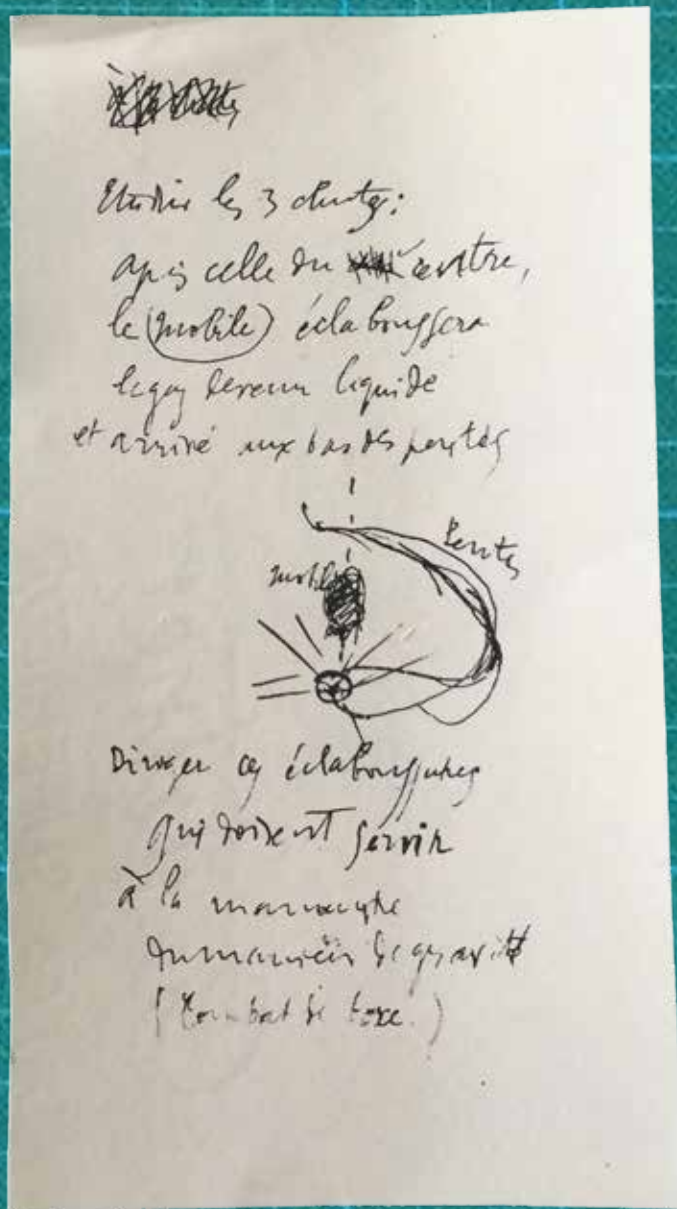 Etudier les 3 chutes:
après celle du centre,
le (mobile) éclaboussera
le gaz devenu liquide
et arrivé aux bas des pentes
Pentes
mobile
Diriger ces éclaboussures
qui doivent servir
à la manœuvre
du manieur de gravité
(Combat de boxe.)